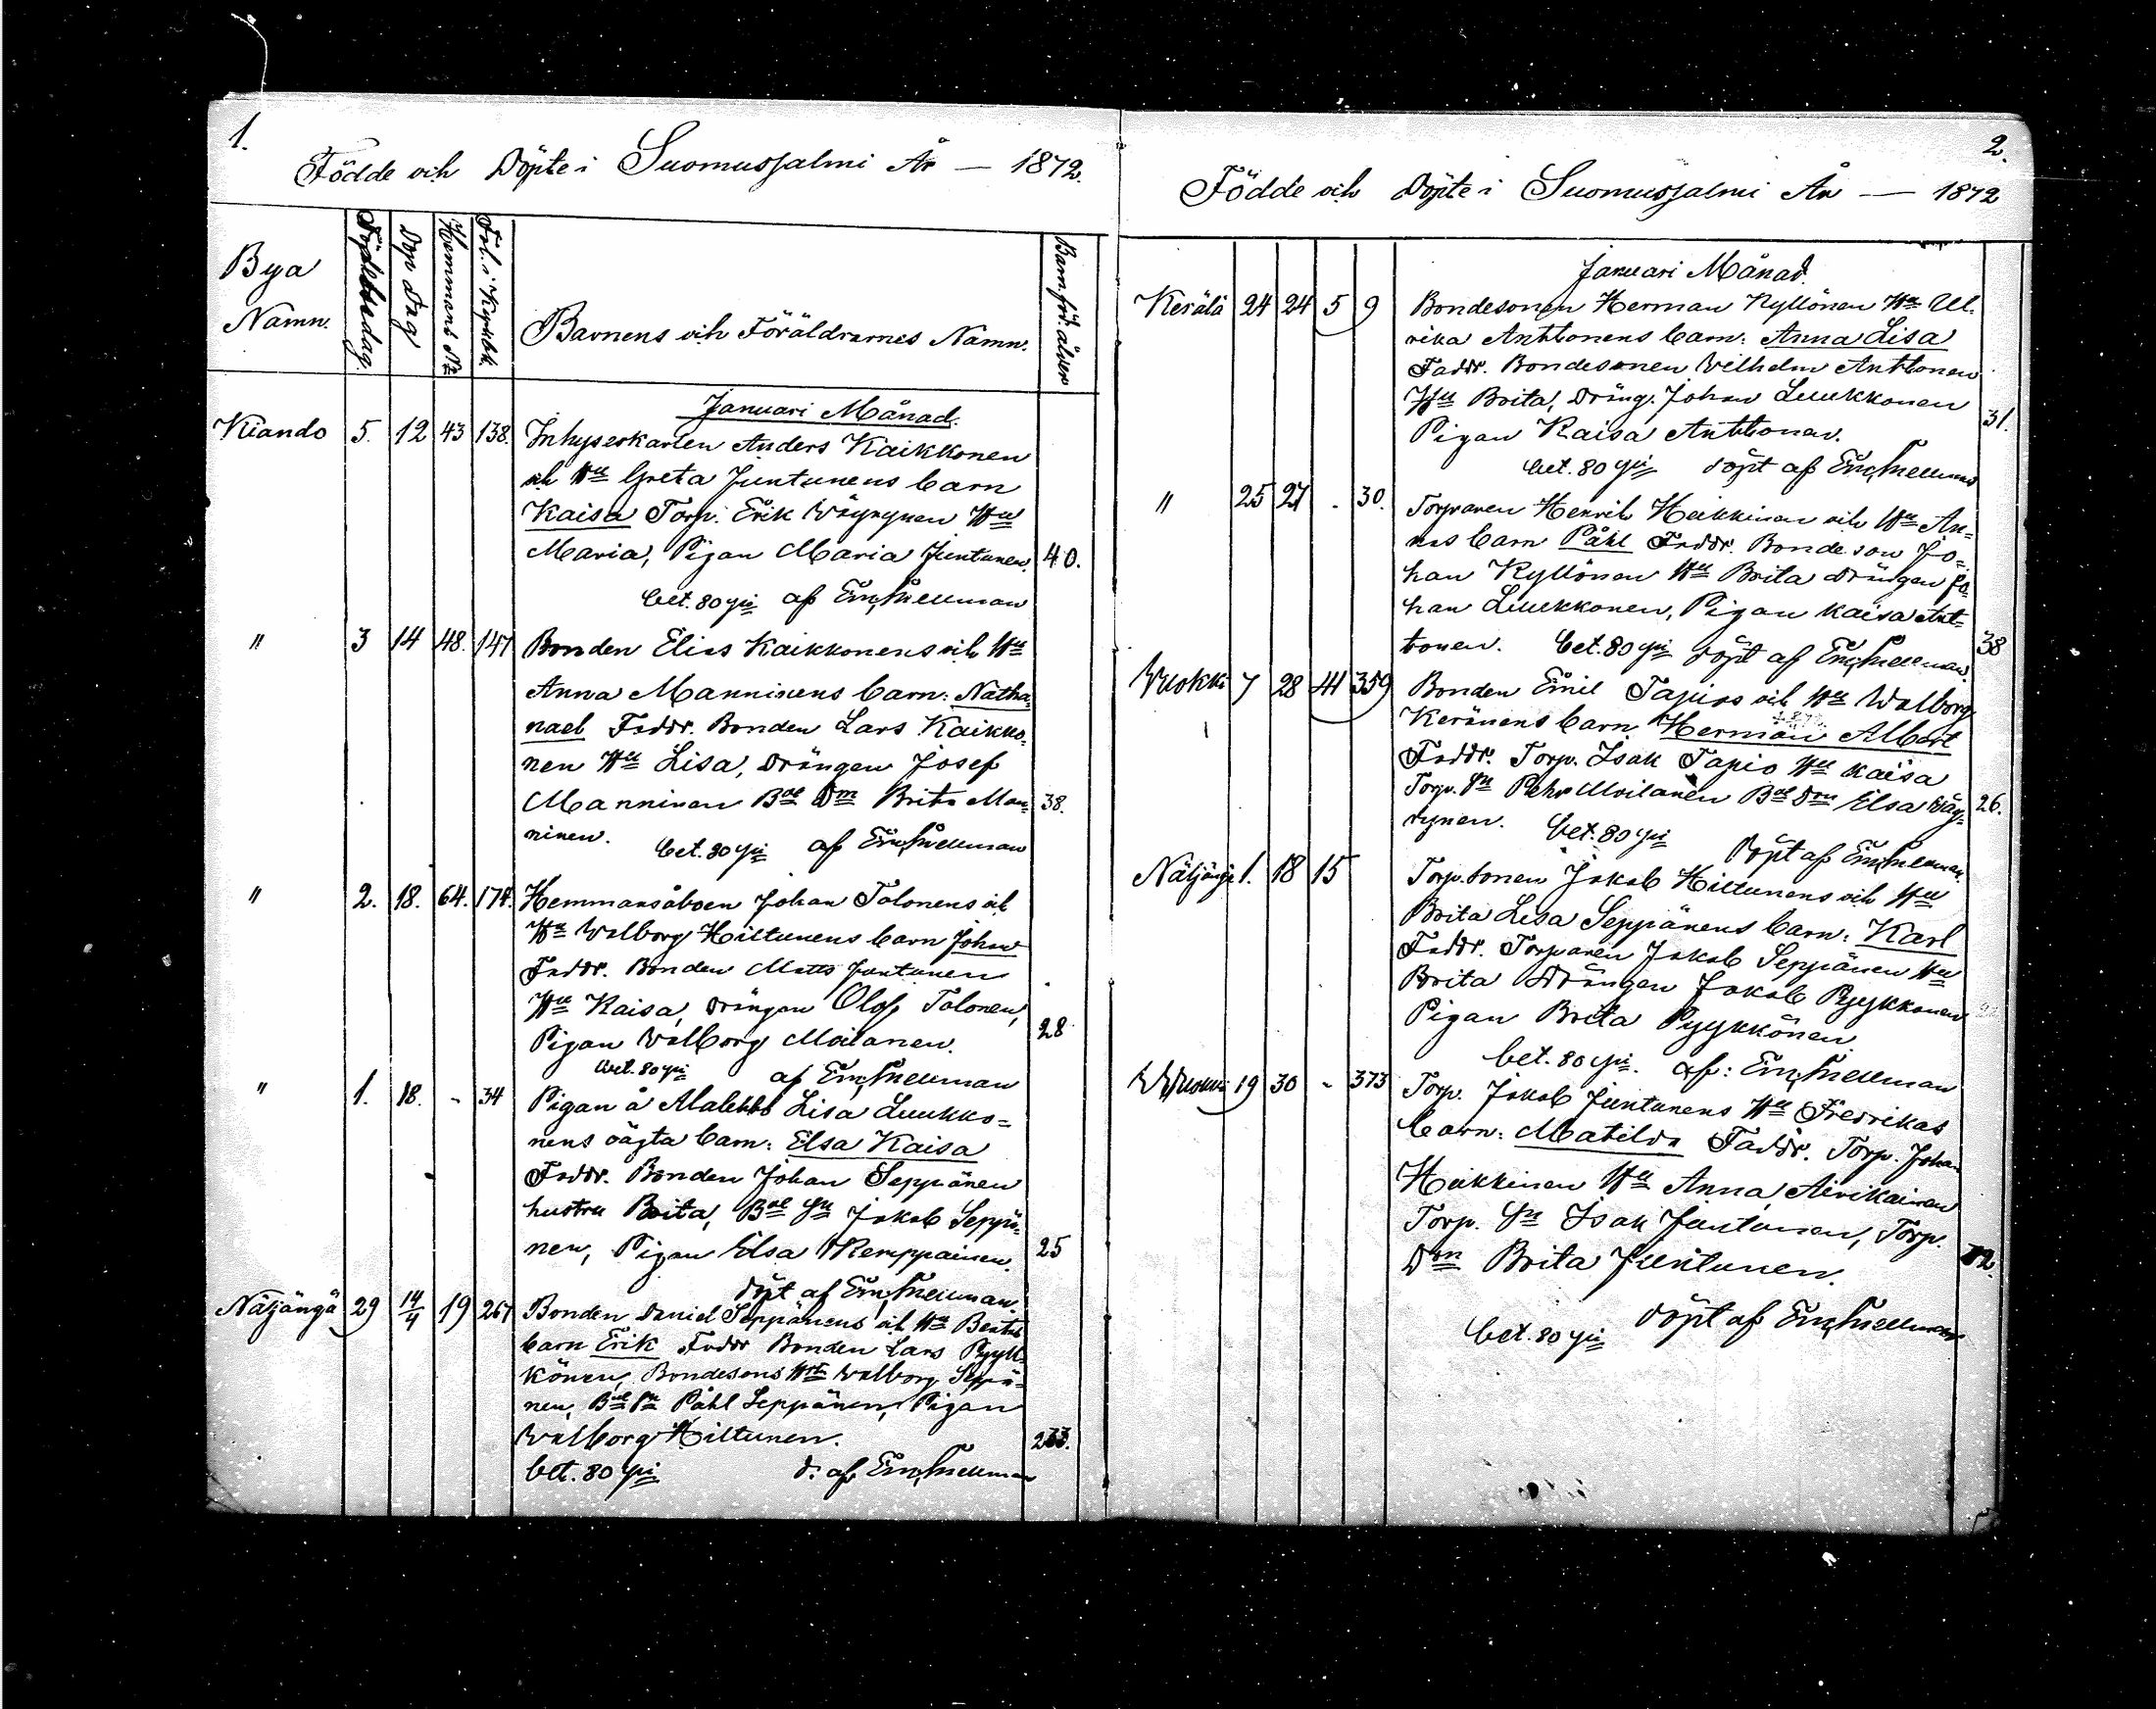 1.
Födde och Döpte i Suomussalmi År — 1872.
Bya
Namn.
Födelsedag.
Dop Dag
Hemmans №
Fol. i Kyrkbk.
Barnens och Föräldrarnes Namn.
Barnföd. ålder
Januari Månad.
Kiando 5. 12 43 138. Inhyseskarlen Anders Kaikkonen
och Hu Greta Juntunens barn
Kaisa Torp. Erik Väyrynen Hu
Maria, Pigan Maria Juntunen. 40.
bet. 80 pi af Em. Snellman
" 3 14 48. 147 Bonden Elias Kaikkonens och Hu
Anna Manninens barn: Natha-
nael Faddr. Bonden Lars Kaikko-
nen Hu Lisa, Drängen Josef
Manninen Bde Dm Brita Man- 38.
ninen. bet. 80 pi af Em. Snellman
" 2. 18. 64. 174. Hemmansåboen Johan Tolonens och
Hu Walborg Hiltunens barn Johan
Faddr. Bonden Matts Juntunen
Hu Kaisa, Drängen Olof Tolonen,
Pigan Walborg Moilanen. 28
bet. 80 pi af Em. Snellman
" 1. 18. - 34 Pigan å Alalehto Lisa Luukko-
nens oägta barn: Elsa Kaisa
Faddr. Bonden Johan Seppänen
hustru Brita, Bde Sn Jakob Seppä-
nen, Pigan Elsa Kemppainen. 25
döpt af Em. Snellman.
Näljängä 29 14/4 19 267 Bonden David Seppänens och Hu Beatas
barn Erik Faddr Bonden Lars Pyyk-
könen, Bondesons Hu Walborg Seppä-
nen, Bde Sn Påhl Seppänen, Pigan
Walborg Hiltunen. 233.
bet. 80 pi d. af Em. Snellman
2.
Födde och Döpte i Suomussalmi År — 1872
Januari Månad.
Kerälä 24 24 5 9 Bondesonen Herman Kyllönen Hu Ul-
rika Anttonens barn: Anna Lisa
Faddr. Bondesonen Wilhelm Anttonen
Hu Brita, Dräng. Johan Luukkonen
Pigan Kaisa Anttonen. 31.
bet. 80 pi döpt af Em. Snellman
" 25 27 . 30. Torparen Henrik Heikkinen och Hu An-
nas barn Påhl Faddr. Bondeson Jo-
han Kyllönen Hu Brita drängen Jo-
han Luukkonen, Pigan Kaisa Ant-
tonen. bet. 80 pi döpt af Em. Snellman. 38
Wuokki 7 28 41 359 Bonden Emil Tapios och Hu Walborg
Keränens barn Herman Albert
Faddr. Torp. Isak Tapio Hu Kaisa
Torp. Sn Pehr Moilanen Bde Dm Elsa Wäy- 26.
rynen. bet. 80 pi Döpt af Em. Snellman.
Näljängä 1. 18 15 Torp. sonen Jakob Hiltunens och Hu
Brita Lisa Seppänens barn: Karl
Faddr. Torparen Jakob Seppänen Hu
Brita Drängen Jakob Pyykkönen
Pigan Brita Pyykkönen.
bet. 80 pi. af: Em. Snellman
19 30 - 373 Torp. Jakob Juntunens Hu Fredrikas
barn: Matilda Faddr. Torp. Johan
Heikkinen Hu Anna, Airikainen
Torp. Sn Isak Juntunen, Torp.
Dm Brita Juntunen.
bet. 80 pi döpt af Em. Snellman